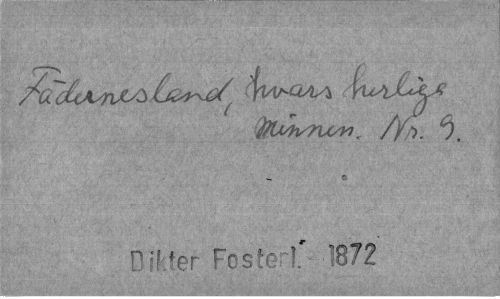 Fädernesland, hvars herliga
minnen. Nr. 9.
Dikter Fosterl. 1872